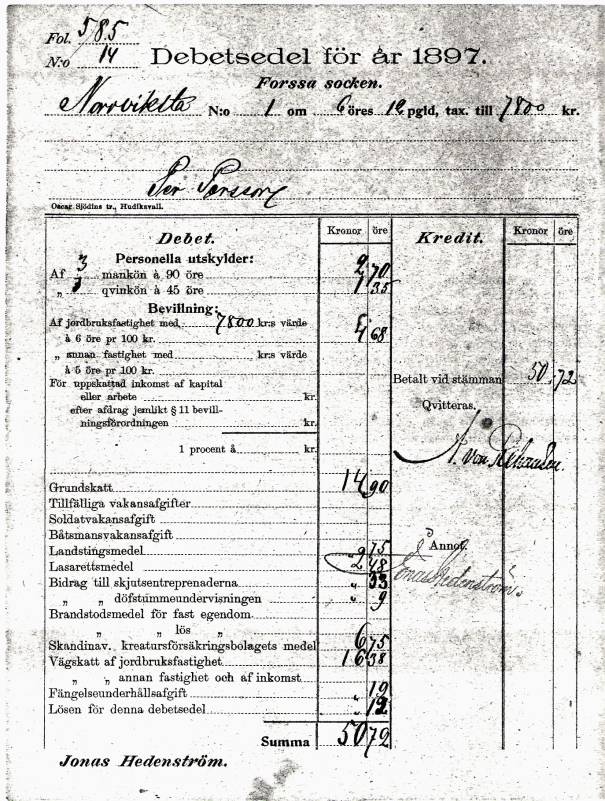 Fol. 585
N:o 14
Debetsedel för år 1897.
Forssa socken.
Norrviksta N:o 1 om 6 öres 12 pgld, tax. till 7800 kr.
Per Persson
Oscar Sjödins tr., Hudiksvall.
Debet. Kronor öre Kredit. Kronor öre
Personella utskylder:
Af 3 mankön à 90 öre 2 70
„ 3 qvinkön à 45 öre 1 35
Bevillning:
Af jordbruksfastighet med 7800 kr:s värde
à 6 öre pr 100 kr. 4 68
„ annan fastighet med kr:s värde
à 5 öre pr 100 kr.
Betalt vid stämman 50 72
För uppskattad inkomst af kapital
eller arbete kr.
Qvitteras.
efter afdrag jemlikt § 11 bevill-
ningsförordningen kr.
1 procent å kr.
A. von
Grundskatt 14 90
Tillfälliga vakansafgifter
Soldatvakansafgift
Båtsmansvakansafgift
Landstingsmedel 75
Annot.
Lasarettsmedel 2 48
Jonas Hedenström.
Bidrag till skjutsentreprenaderna „ 33
„ „ döfstummeundervisningen „ 9
Brandstodsmedel för fast egendom
„ „ lös „
Skandinav. kreatursförsäkringsbolagets medel 6 75
Vägskatt af jordbruksfastighet 16 38
„ „ annan fastighet och af inkomst
Fängelseunderhållsafgift „ 19
Lösen för denna debetsedel „ 12
Summa 50 72
Jonas Hedenström.